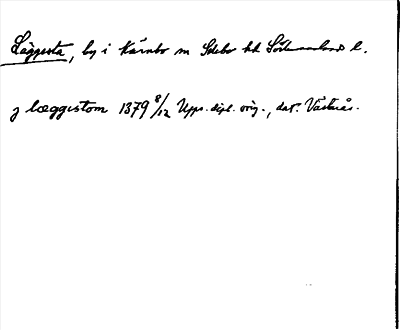 Läggesta, by i Kärnbo sn Selebo hd Södermanlands l.
j læggistom 1379 8/12 Upps. dipl. orig., dat. Västerås.